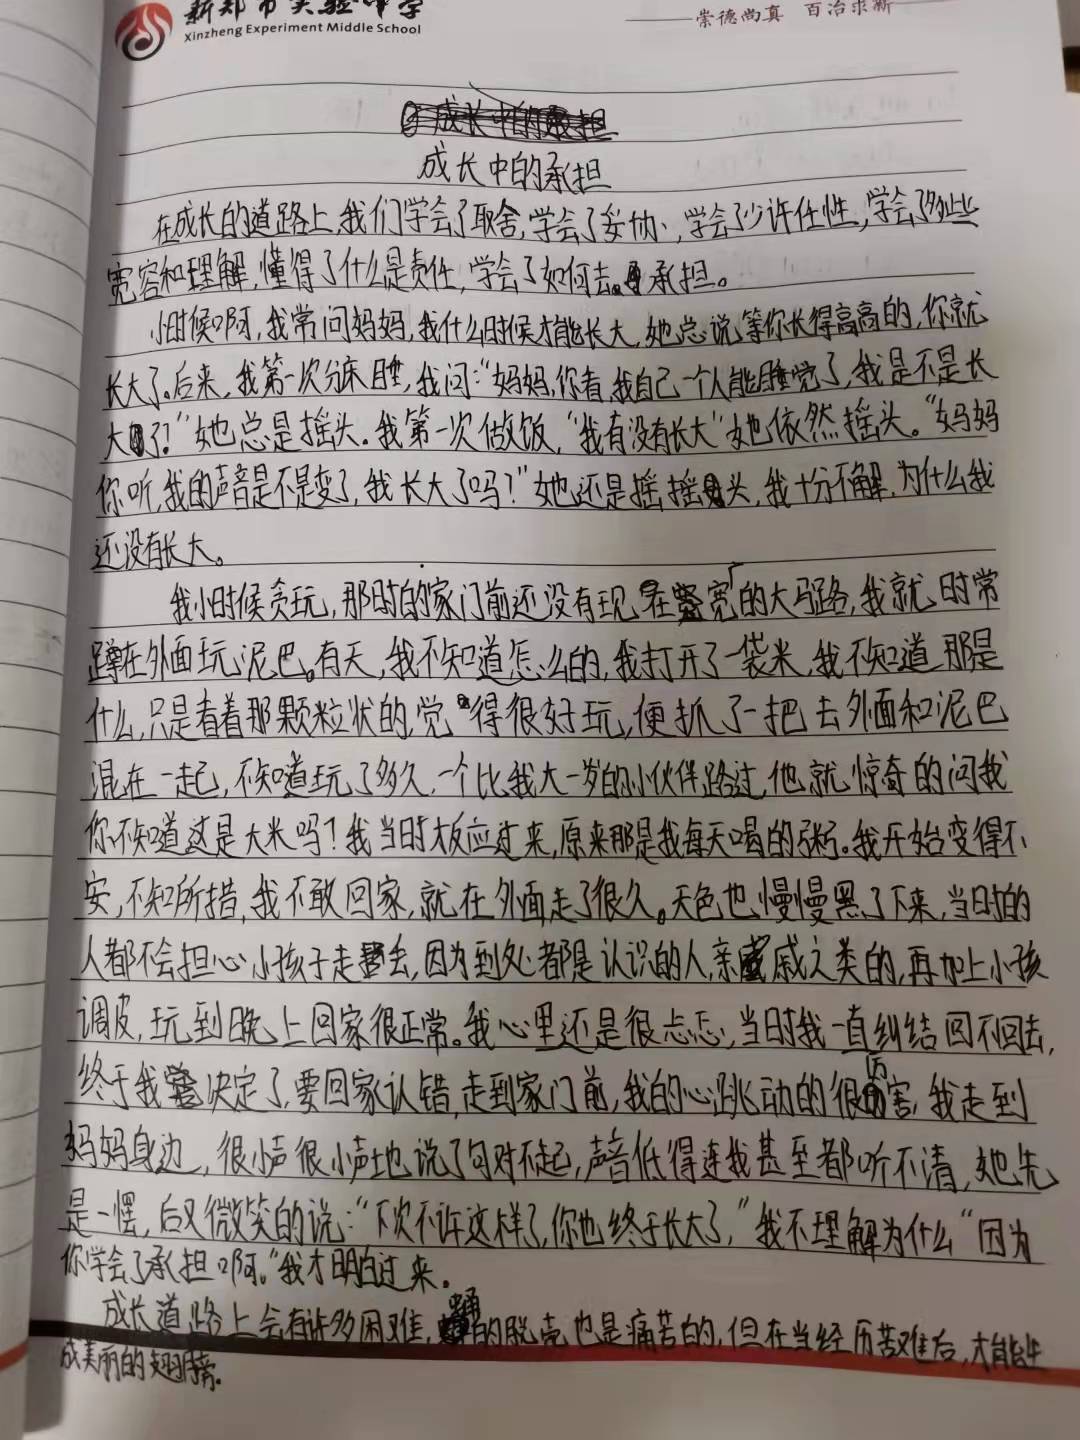 新郑市实验中学
Xinzheng Experiment Middle School
崇德尚真 百治求新
成长中的承担
成长中的承担
在成长的道路上,我们学会了取舍,学会了妥协,学会了少许任性,学会了多些
宽容和理解,懂得了什么是责任,学会了如何去承担。
小时候啊,我常问妈妈,我什么时候才能长大,她总说等你长得高高的,你就
长大了。后来,我第一次分床睡,我问:“妈妈,你看,我自己一个人能睡觉了,我是不是长
大了?”她总是摇头。我第一次做饭,“我有没有长大”她依然摇头。“妈妈
你听,我的声音是不是变了,我长大了吗?”她还是摇摇头,我十分不解,为什么我
还没有长大。
我小时候贪玩,那时的家门前还没有现在宽的大马路,我就时常
蹲在外面玩泥巴。有天,我不知道怎么的,我打开了一袋米,我不知道那是
什么,只是看着那颗粒状的,觉得很好玩,便抓了一把去外面和泥巴
混在一起,不知道玩了多久,一个比我大一岁的小伙伴路过,他就惊奇的问我
你不知道这是大米吗?我当时板应过来,原来那是我每天喝的粥。我开始变得不
安,不知所措,我不敢回家,就在外面走了很久。天色也慢慢黑了下来,当时的
人都不会担心小孩子走去,因为到处都是认识的人,亲戚之类的,再加上小孩
调皮,玩到晚上回家很正常。我心里还是很忐忑,当时我一直纠结回不回去,
终于我决定了,要回家认错,走到家门前,我的心跳动的很厉害,我走到
妈妈身边,很小声很小声地说了句对不起,声音低得连我甚至都听不清,她先
是一愣,后又微笑的说:“下次不许这样了,你也终于长大了,”我不理解为什么“因为
你学会了承担啊。”我才明白过来。
成长道路上会有许多困难,蛹的脱壳也是痛苦的,但在当经历苦难后,才能生
成美丽的翅膀。